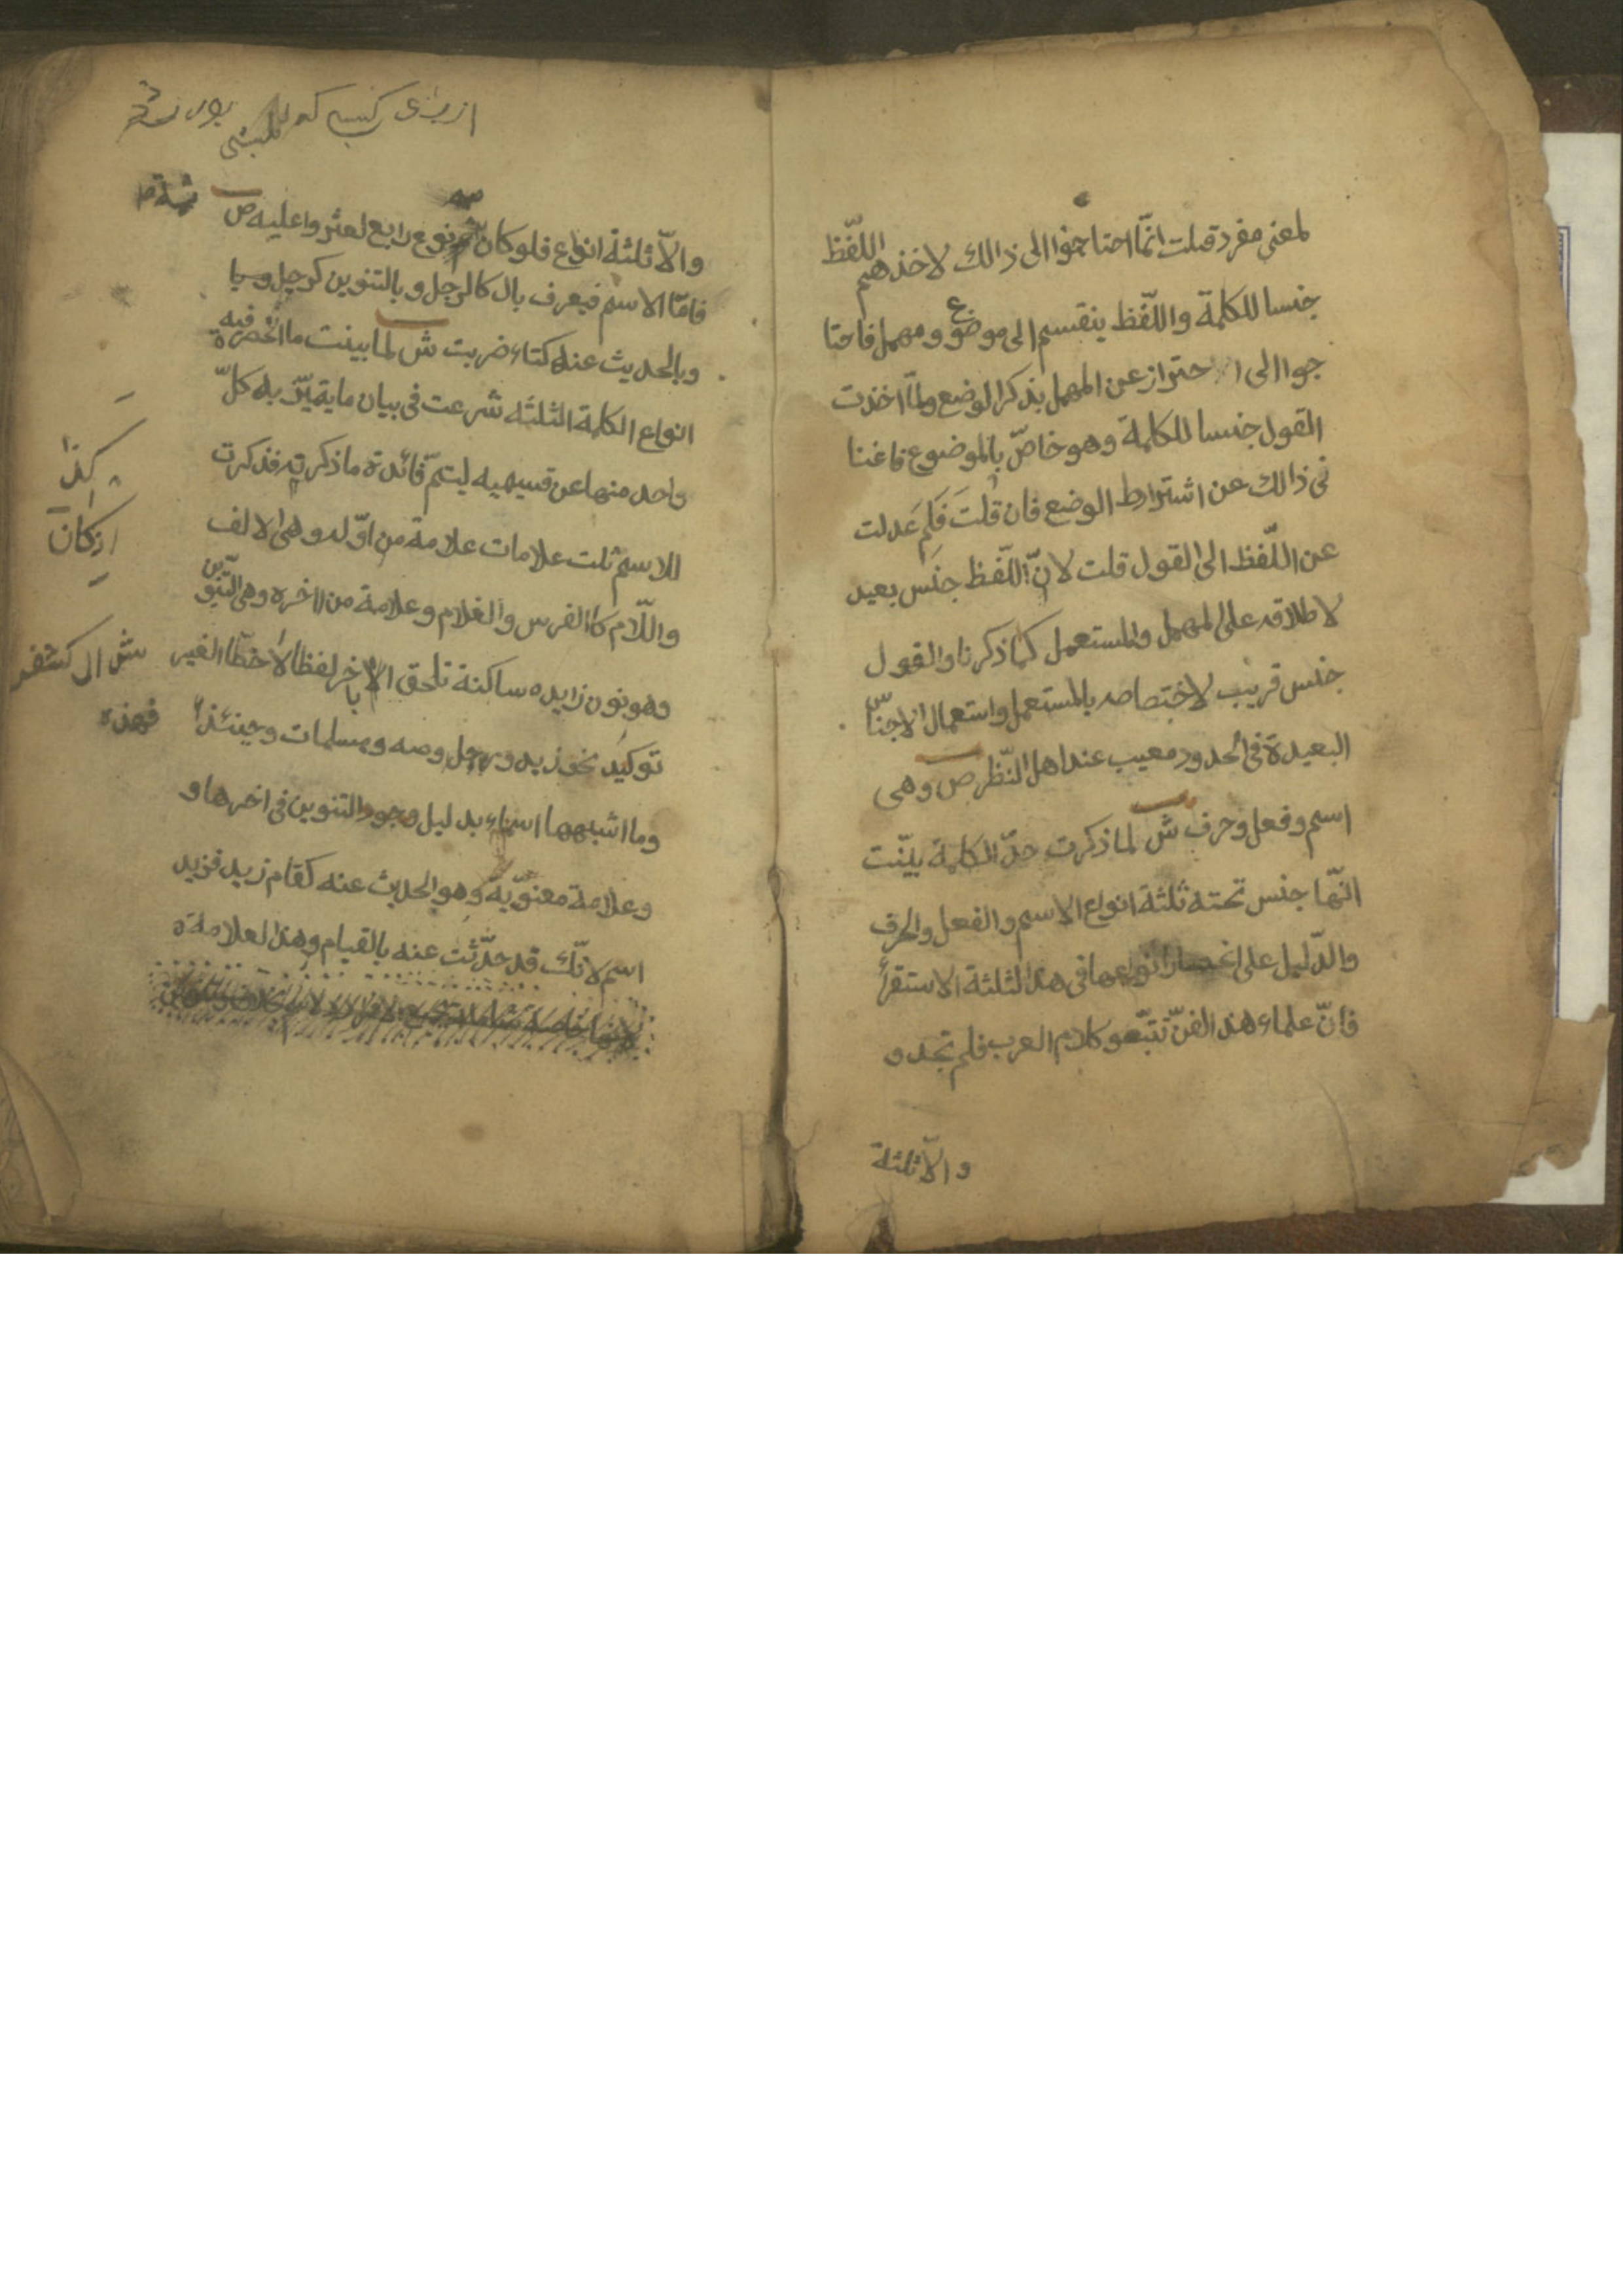 لمعنى مفرد قلت انّما احتاجوا الى ذالك لاخذهم اللّفظ
جنسا للكلمة واللّفظ ينقسم الى موضوع ومهمل فاحتا
جوا الى الاحتراز عن المهمل بذكر الوضع ولمّا اخذت
القول جنسا للكلمة وهو خاصّ بالموضوع فاغنا
نى ذالك عن اشتراط الوضع فان قلتَ فَلِمَ عَدلت
عن اللّفظ الى القول قلت لانّ اللّفظ جنس بعيد
لاطلاقه على المهمل والمستعمل كما ذكرنا والقول
جنس قريب لاختصاصه بالمستعمل واستعمال الاجناس
البعيدة فى الحدود معيب عند اهل النّظر ص وهى
اسم وفعل وحرف ش لما ذكرت حدّ الكلمة بيّنت
انّها جنس تحته ثلثة انواع الاسم والفعل والحرف
والدّليل على انحصار انواعها فى هذا لثلثة الاستقرأ
فانّ علماء هذ الفنّ تتبّعو كلام العرب فلم تجدو
والّا ثلثة
كه
والّا ثلثة انواع فلو كان ثمّ نوع رابع لعثر واعليه ص
فامّا الاسم فيعرف بال كالرجل وبالتنوين كرجل و
وبالحديث عنه كتاء ضربت ش لما بينت ما انحصرة فيه
انواع الكلمة الثلثه شرعت فى بيان ما يتميّز به كلّ
واحد منها عن قسيميه ليتمّ فائدة ما ذكرته فذكرت
للاسم ثلث علامات علامة من اوّله وهى الالف
واللّام كاالفرس والغلام وعلامة من اخره وهى التّنوين
وهو نون زايده ساكنة تلحق الاخر لفظا لا خطّا لغير
توكيد نحو زيد ورجل وصه ومسلمات وحينئذ فهذه
وما اشبهها اسماء بدليل وجود التنوين فى اخرها و
وعلامة معنويّة وهو الحديث عنه كقام زيد فزيد
اسم لانّك قد حدّثت عنه بالقيام وهذا لعلامة
كذا